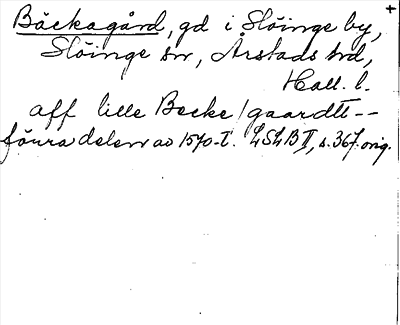 Bäckagård, gd i Slöinge by, +
Slöinge sn, Årstads hd,
Hall. l.
aff lille Becke / gaardtt --
förra delen av 1570-t. LSLB II, s. 367. orig.